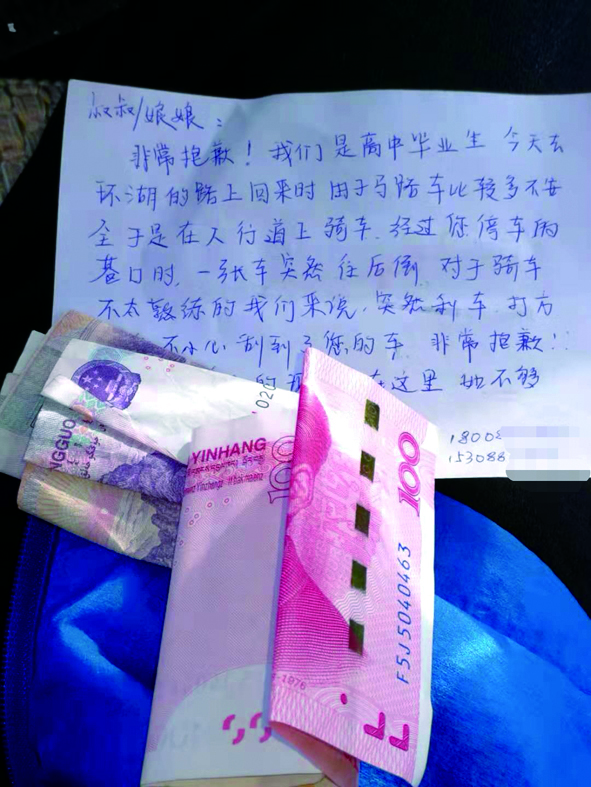 叔叔/娘娘：
非常抱歉！我们是高中毕业生 今天去
环湖的路上回来时 由于马路车比较多不安
全于是在人行道上骑车.经过您停车的
巷口时.一张车突然往后倒.对于骑车
不太熟练的我们来说.突然刹车.打方
不小心刮到了您的车.非常抱歉!!
的 在这里 如不够
18008
153088
NGGUO
02
YINHANG
100
100
F5J5040463
1976